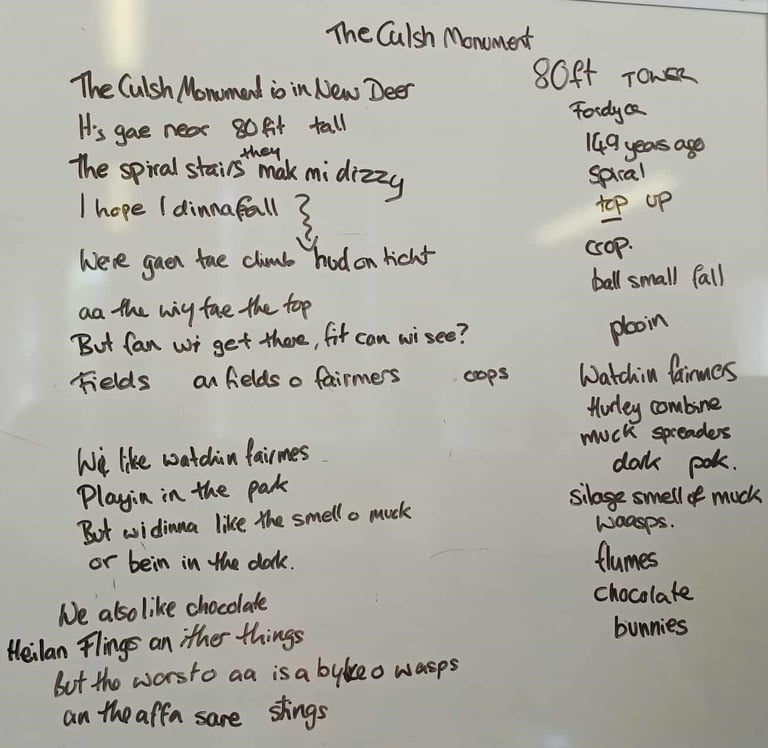 The Culsh Monument
The Culsh Monument is in New Deer
It's gae near 80fit tall
The spiral stairs they mak mi dizzy
I hope I dinna fall
We're gaen tae climb hud on ticht
aa the wiy tae the top
But fan wi get there, fit can wi see?
Fields an fields o fairmers crops
Wi like watchin fairmes
Playin in the park
But wi dinna like the smell o muck
or bein in the dark.
We also like chocolate
Heilan Flings an ither things
But the worst o aa is a byke o wasps
an the affa sare stings
80ft TOWER
Fordyce
149 years ago
Spiral
top up
crop.
ball small fall
Watchin fairmers
Hurley combine
muck spreaders
dark park.
Silage smell of muck
Waasps.
flumes
chocolate
bunnies